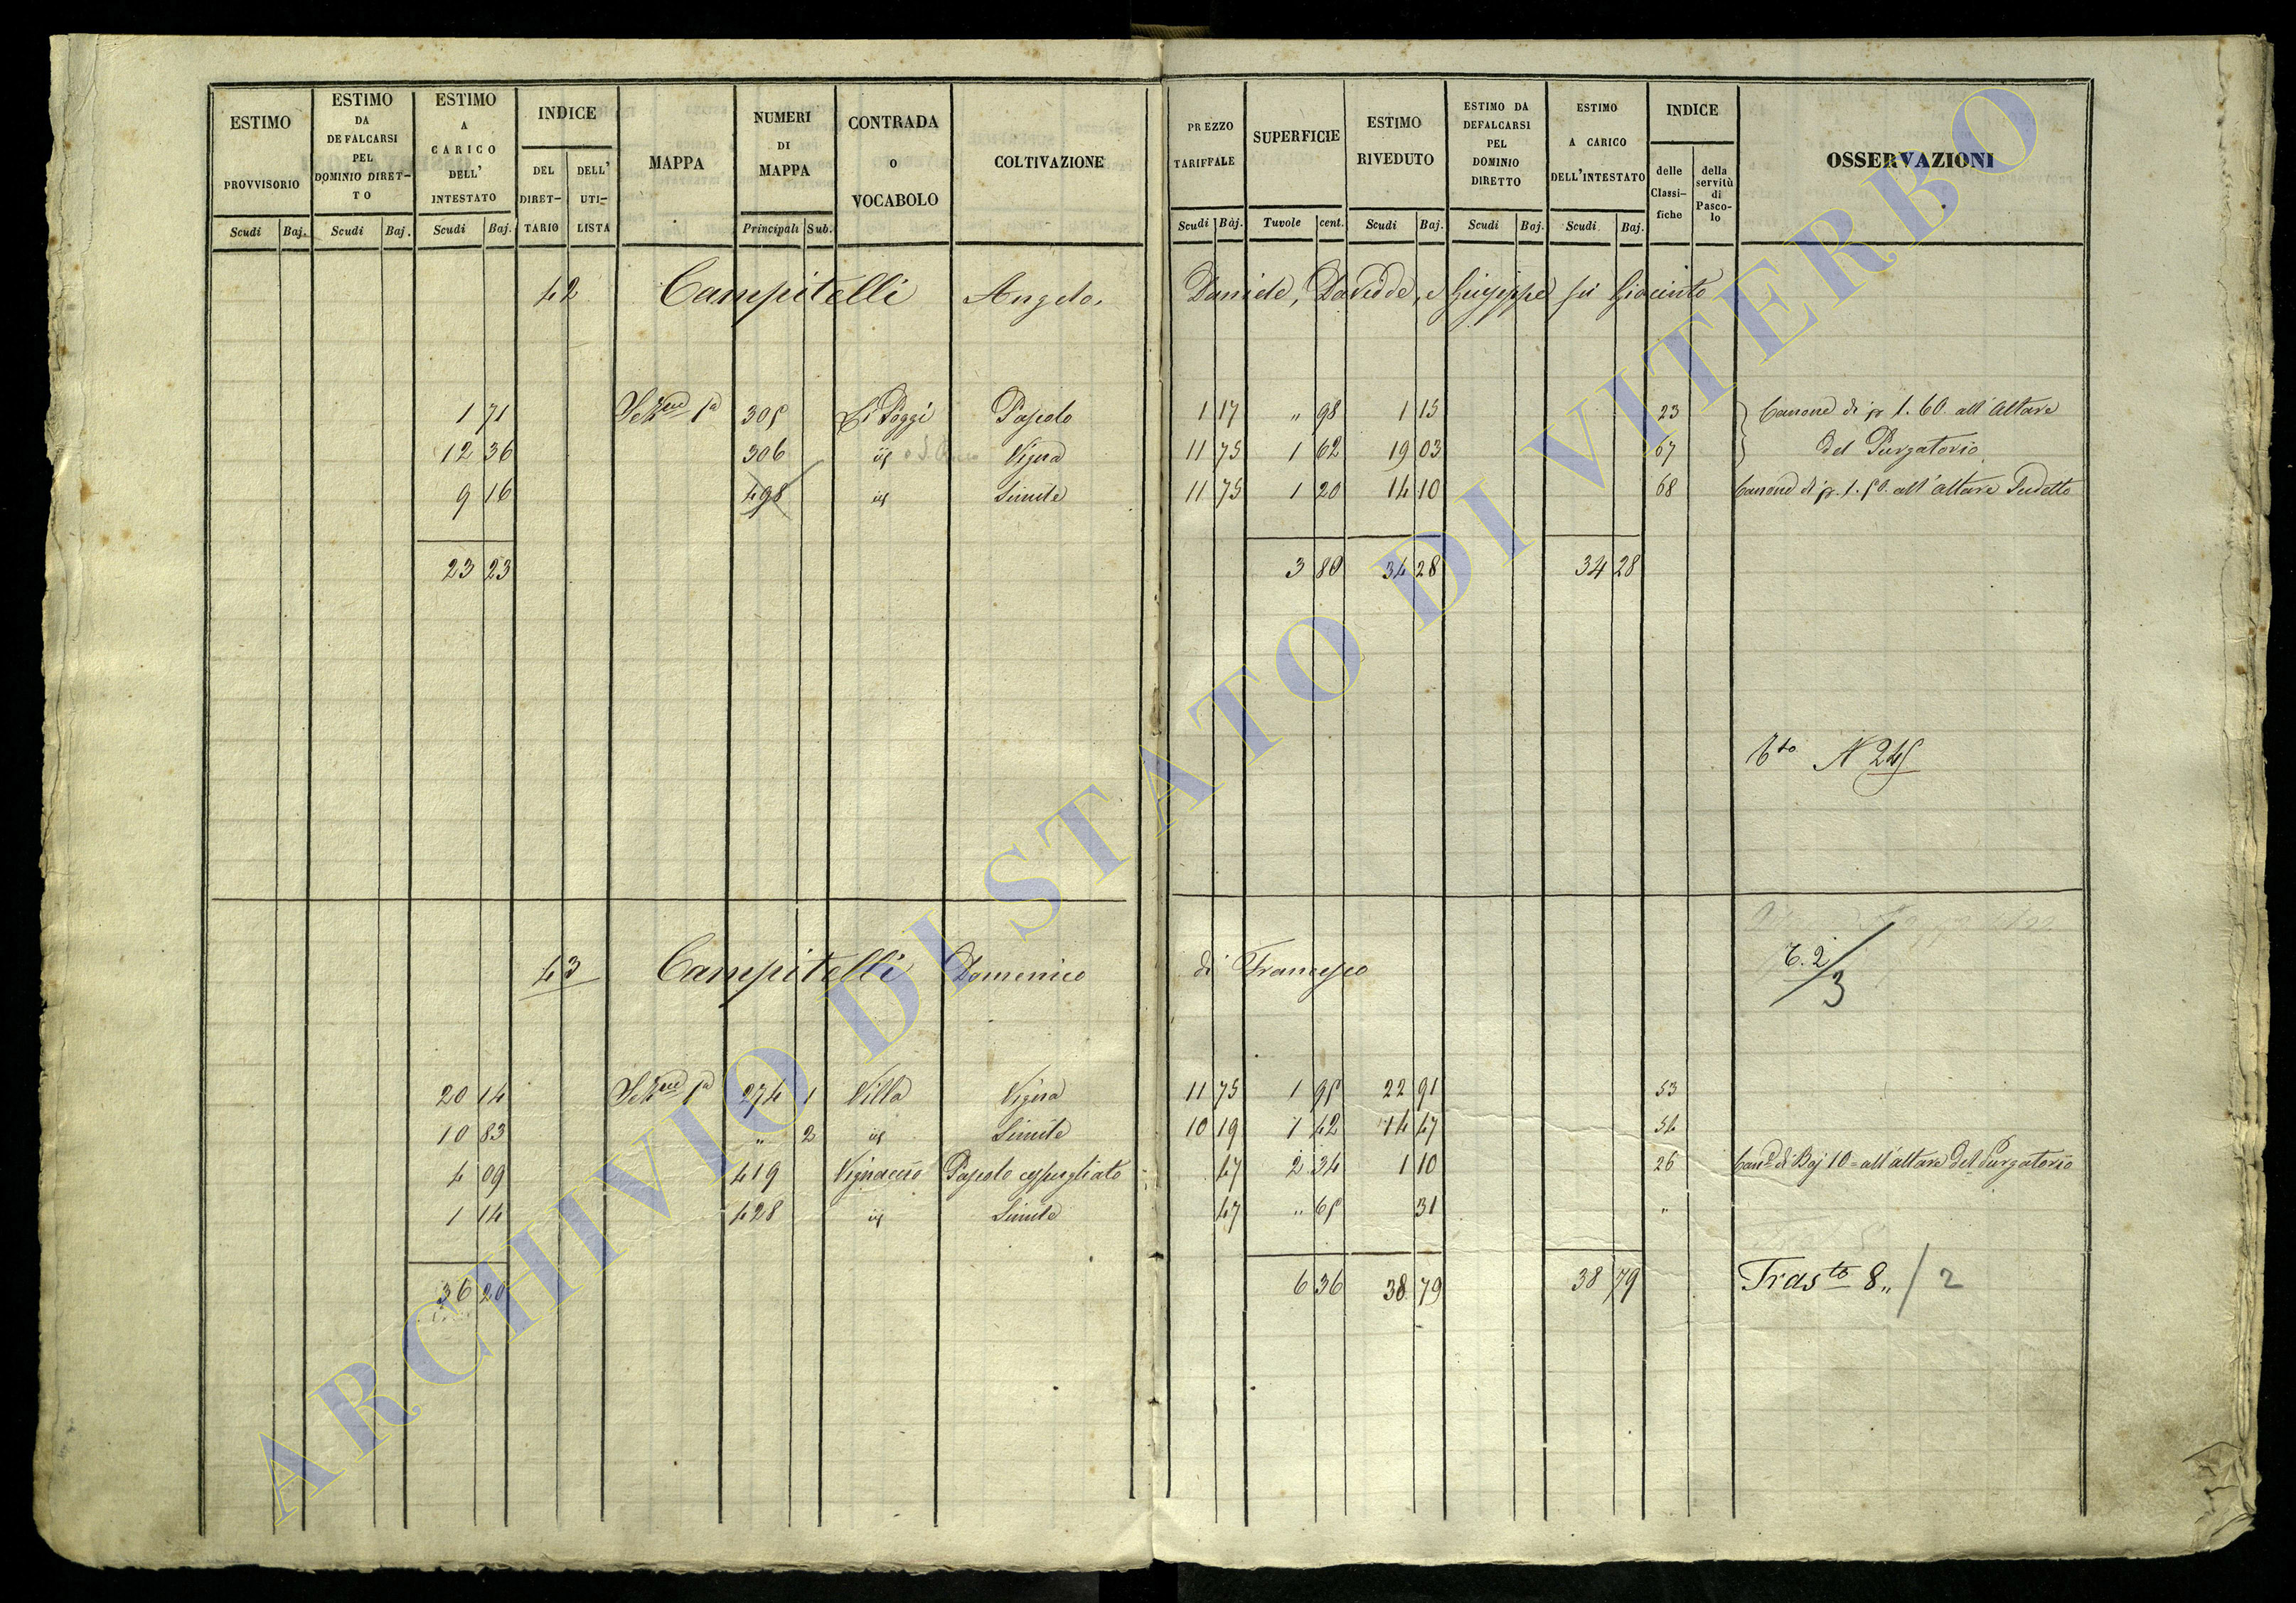 ESTIMO PROVVISORIO | ESTIMO DA DEFALCARSI PEL DOMINIO DIRET-TO | ESTIMO A CARICO DELL' INTESTATO | INDICE | MAPPA | NUMERI DI MAPPA | CONTRADA O VOCABOLO | COLTIVAZIONE | PREZZO TARIFFALE | SUPERFICIE | ESTIMO RIVEDUTO | ESTIMO DA DEFALCARSI PEL DOMINIO DIRETTO | ESTIMO A CARICO DELL'INTESTATO | INDICE | OSSERVAZIONI
DEL DIRET-TARIO | DELL' UTI-LISTA | delle Classi-fiche | della servitù di Pasco-lo
Scudi | Baj. | Scudi | Baj. | Scudi | Baj. | Principali | Sub. | Scudi | Baj. | Tavole | cent. | Scudi | Baj. | Scudi | Baj. | Scudi | Baj.
42 Campitelli Angelo, Daniele, Davidde, e Giuseppe fu Giacinto
1 71 | Sezne 1a | 305 | Li Poggi | Pascolo | 1 17 | " 98 | 1 15 | 23 | Canone di p 1. 60. all'Altare
12 36 | 306 | id | Vigna | 11 75 | 1 62 | 19 03 | 67 | del Purgatorio
9 16 | 498 | id | Simile | 11 75 | 1 20 | 14 10 | 68 | Canone di p. 1. 50. all'altare Sudetto
23 23 | 3 80 | 34 28 | 34 28
Tto N 245
43 Campitelli Domenico di Francesco
T. 2/3
20 14 | Sezne 1a | 274 | 1 | Villa | Vigna | 11 75 | 1 95 | 22 91 | 53
10 83 | " | 2 | id | Simile | 10 19 | 1 42 | 14 47 | 54
4 09 | 419 | Vignaccio | Pascolo cespugliato | 47 | 2 34 | 1 10 | 26 | Cane di Baj 10= all'altare del Purgatorio
1 14 | 428 | id | Simile | 47 | " 65 | 31 | "
36 20 | 6 36 | 38 79 | 38 79 | Trasto 8,, / 2
ARCHIVIO DI STATO DI VITERBO